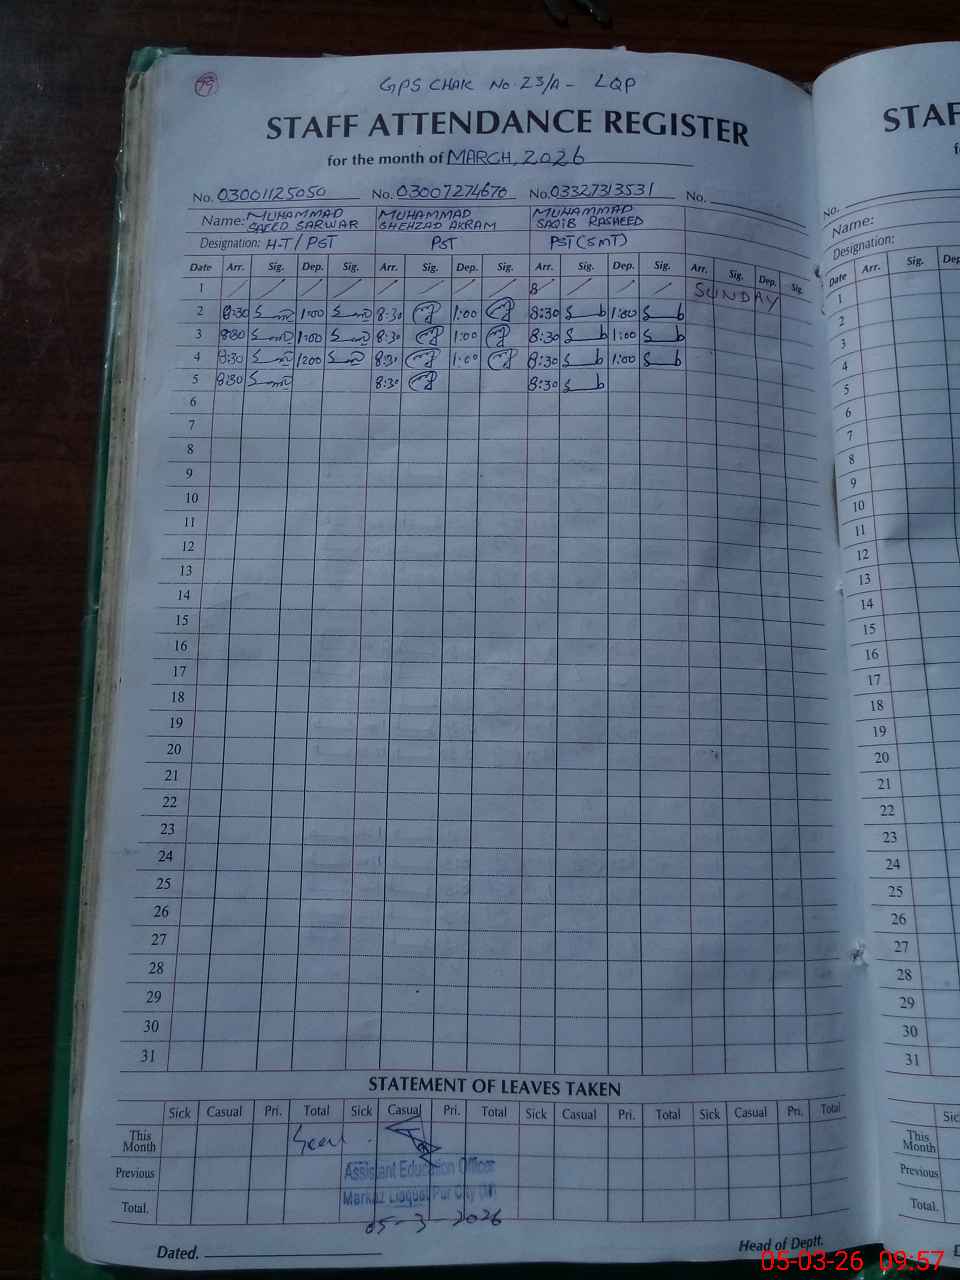 49
GPS CHAK No. 23/A - LQP
STAFF ATTENDANCE REGISTER
for the month of MARCH, 2026
No. 03001125050 No. 03007274670 No. 03327313531 No.
Name: MUHAMMAD SAEED SARWAR MUHAMMAD SHEHZAD AKRAM MUHAMMAD SAQIB RASHEED
Designation: H-T/PST PST PST(SMT)
Date Arr. Sig. Dep. Sig. Arr. Sig. Dep. Sig. Arr. Sig. Dep. Sig. Arr. Sig. Dep. Sig.
1 SUNDAY
2 8:30 1:00 8:30 1:00 8:30 1:00
3 8:30 1:00 8:30 1:00 8:30 1:00
4 8:30 1:00 8:30 1:00 8:30 1:00
5 8:30 8:30 8:30
6
7
8
9
10
11
12
13
14
15
16
17
18
19
20
21
22
23
24
25
26
27
28
29
30
31
STATEMENT OF LEAVES TAKEN
Sick Casual Pri. Total Sick Casual Pri. Total Sick Casual Pri. Total Sick Casual Pri. Total
This Month Seen
Previous
Total.
Assistant Education Officer
Markaz Liaquat Pur City (M)
05-3-2026
Dated. Head of Deptt.
STAF
f
No.
Name:
Designation:
Date Arr. Sig. Dep
1
2
3
4
5
6
7
8
9
10
11
12
13
14
15
16
17
18
19
20
21
22
23
24
25
26
27
28
29
30
31
Sic
This Month
Previous
Total.
D
05-03-26 09:57